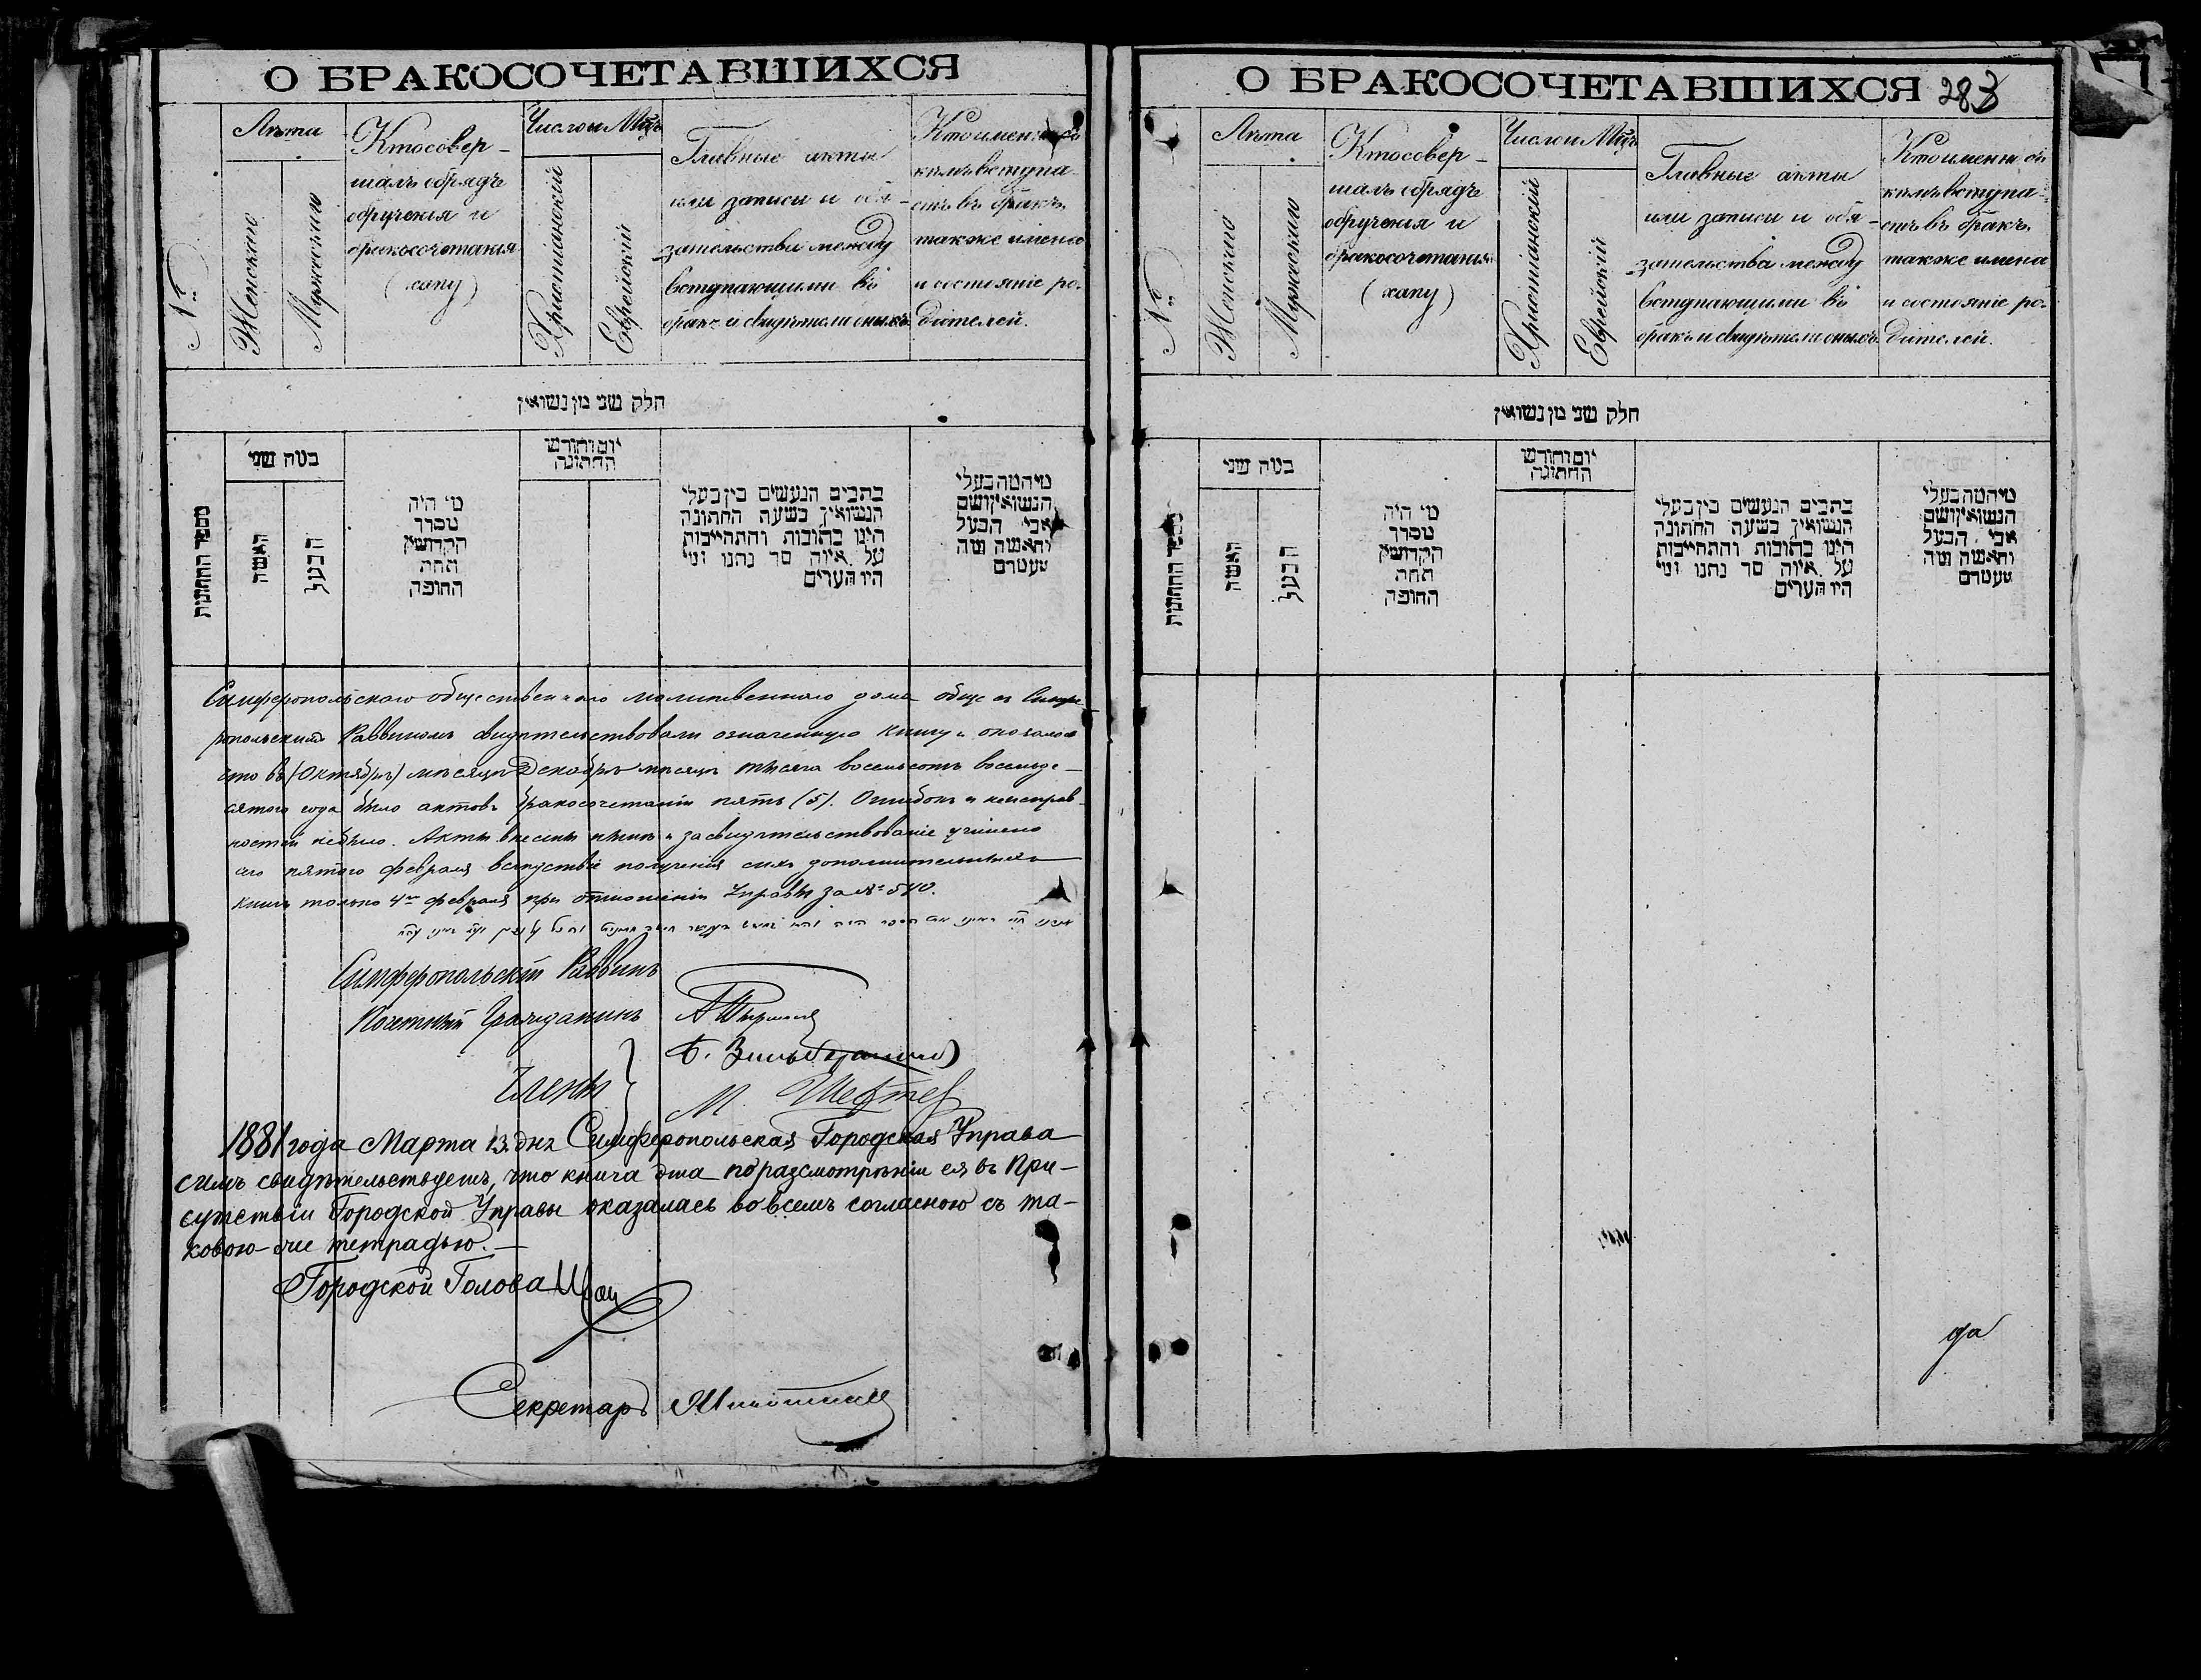 О БРАКОСОЧЕТАВШИХСЯ
№
Лѣта
Женскаго
Мужескаго
Кто совер-
шалъ обрядъ
обрученія и
бракосочетанія
(хану)
Число и Мѣц.
Христіанскій
Еврейскій
Главные акты
или записи и обя-
зательства между
вступающими въ
бракъ и свидѣтели оныхъ
Кто именно съ
кѣмъ вступа-
етъ въ бракъ,
также имена
и состояніе ро-
дителей.
חלק שני מן נשואין
מספר החתונות
כמה שני
האשה
הבעל
מי היה
מסדר
הקדושין
תחת
החופה
יום וחודש
החתונה
כתבים הנעשים בין בעלי
הנשואין בשעת החתונה
היינו כתובות והתחייבות
על איזה סך נתנו ומי
היו העדים
מי המה בעלי
הנשואין ושם
אבי הבעל
והאשה ומה
מעמדם
Симферопольскаго общественнаго молитвеннаго дома обще съ Симфе-
ропольскимъ Раввиномъ свидѣтельствовали означенную книгу и оказалось
что въ (Октябрѣ) мѣсяцѣ Декабрѣ мѣсяцѣ тысяча восемьсотъ восемьде-
сятого года было актовъ бракосочетанія пять (5). Ошибокъ и неисправ-
ностей небыло. Акты внесены и засвидѣтельствованіе учинено
сего пятого февраля вслѣдствіе полученія сихъ дополнительныхъ
книгъ только 4го февраля при отношеніи Управы за № 540.
Симферопольскій Раввинъ
Почетный Гражданинъ
Члены
М. Шефтел
1881 года Марта 13 дня Симферопольская Городская Управа
симъ свидѣтельствуетъ, что книга эта по разсмотрѣніи ея въ При-
сутствіи Городской Управы оказалась во всемъ согласною съ та-
ковою-же тетрадью.
Городской Голова
Секретарь
О БРАКОСОЧЕТАВШИХСЯ 283
№
Лѣта
Женскаго
Мужескаго
Кто совер-
шалъ обрядъ
обрученія и
бракосочетанія
(хану)
Число и Мѣц.
Христіанскій
Еврейскій
Главные акты
или записи и обя-
зательства между
вступающими въ
бракъ и свидѣтели оныхъ
Кто именно съ
кѣмъ вступа-
етъ въ бракъ,
также имена
и состояніе ро-
дителей.
חלק שני מן נשואין
מספר החתונות
כמה שני
האשה
הבעל
מי היה
מסדר
הקדושין
תחת
החופה
יום וחודש
החתונה
כתבים הנעשים בין בעלי
הנשואין בשעת החתונה
היינו כתובות והתחייבות
על איזה סך נתנו ומי
היו העדים
מי המה בעלי
הנשואין ושם
אבי הבעל
והאשה ומה
מעמדם
да